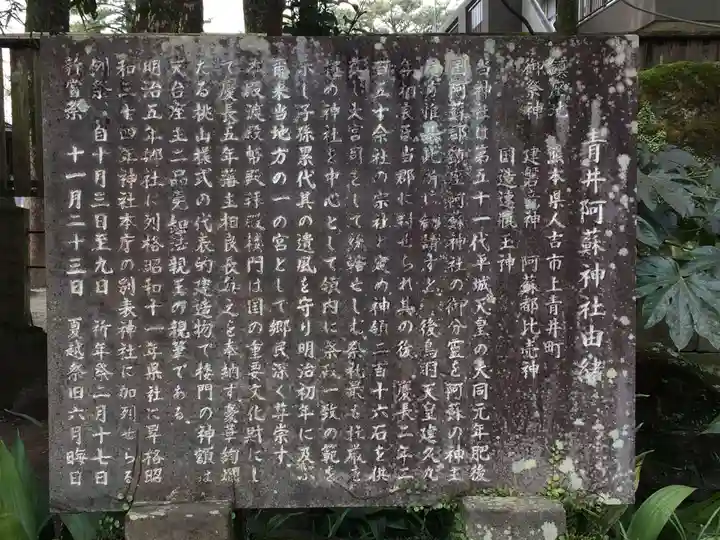 青井阿蘇神社由緒
鎮座地 熊本県人吉市上青井町
御祭神 建磐龍神 阿蘇都比売神
国造速瓶玉神
当神社は第五十一代平城天皇の大同元年肥後
国阿蘇郡鎮座阿蘇神社の御分霊を阿蘇の神主
此所に勧請すと、後鳥羽天皇建久九
年相良氏当郡に封ぜられ其の後 慶長二年二
百五十余社の宗社と定め神領二百十六石を供
大宮司をして 祭礼最も荘厳を
の神社を中心として領内に祭政一致の範を
示し子孫累代其の遺風を守り明治初年に及ぶ
爾来当地方の一の宮として郷民深く尊崇す。
本殿渡殿幣殿拝殿楼門は国の重要文化財にし
て慶長五年藩主相良長 之を奉納す豪華絢爛
たる桃山様式の代表的建造物で楼門の神額は
天台座主二品尭 法親王の親筆である。
明治五年郷社に列格昭和十一年県社に昇格昭
和三十四年神社本庁の別表神社に加列せらる
例祭 自十月三日至九日 祈年祭二月十七日
新嘗祭 十一月二十三日 夏越祭旧六月晦日